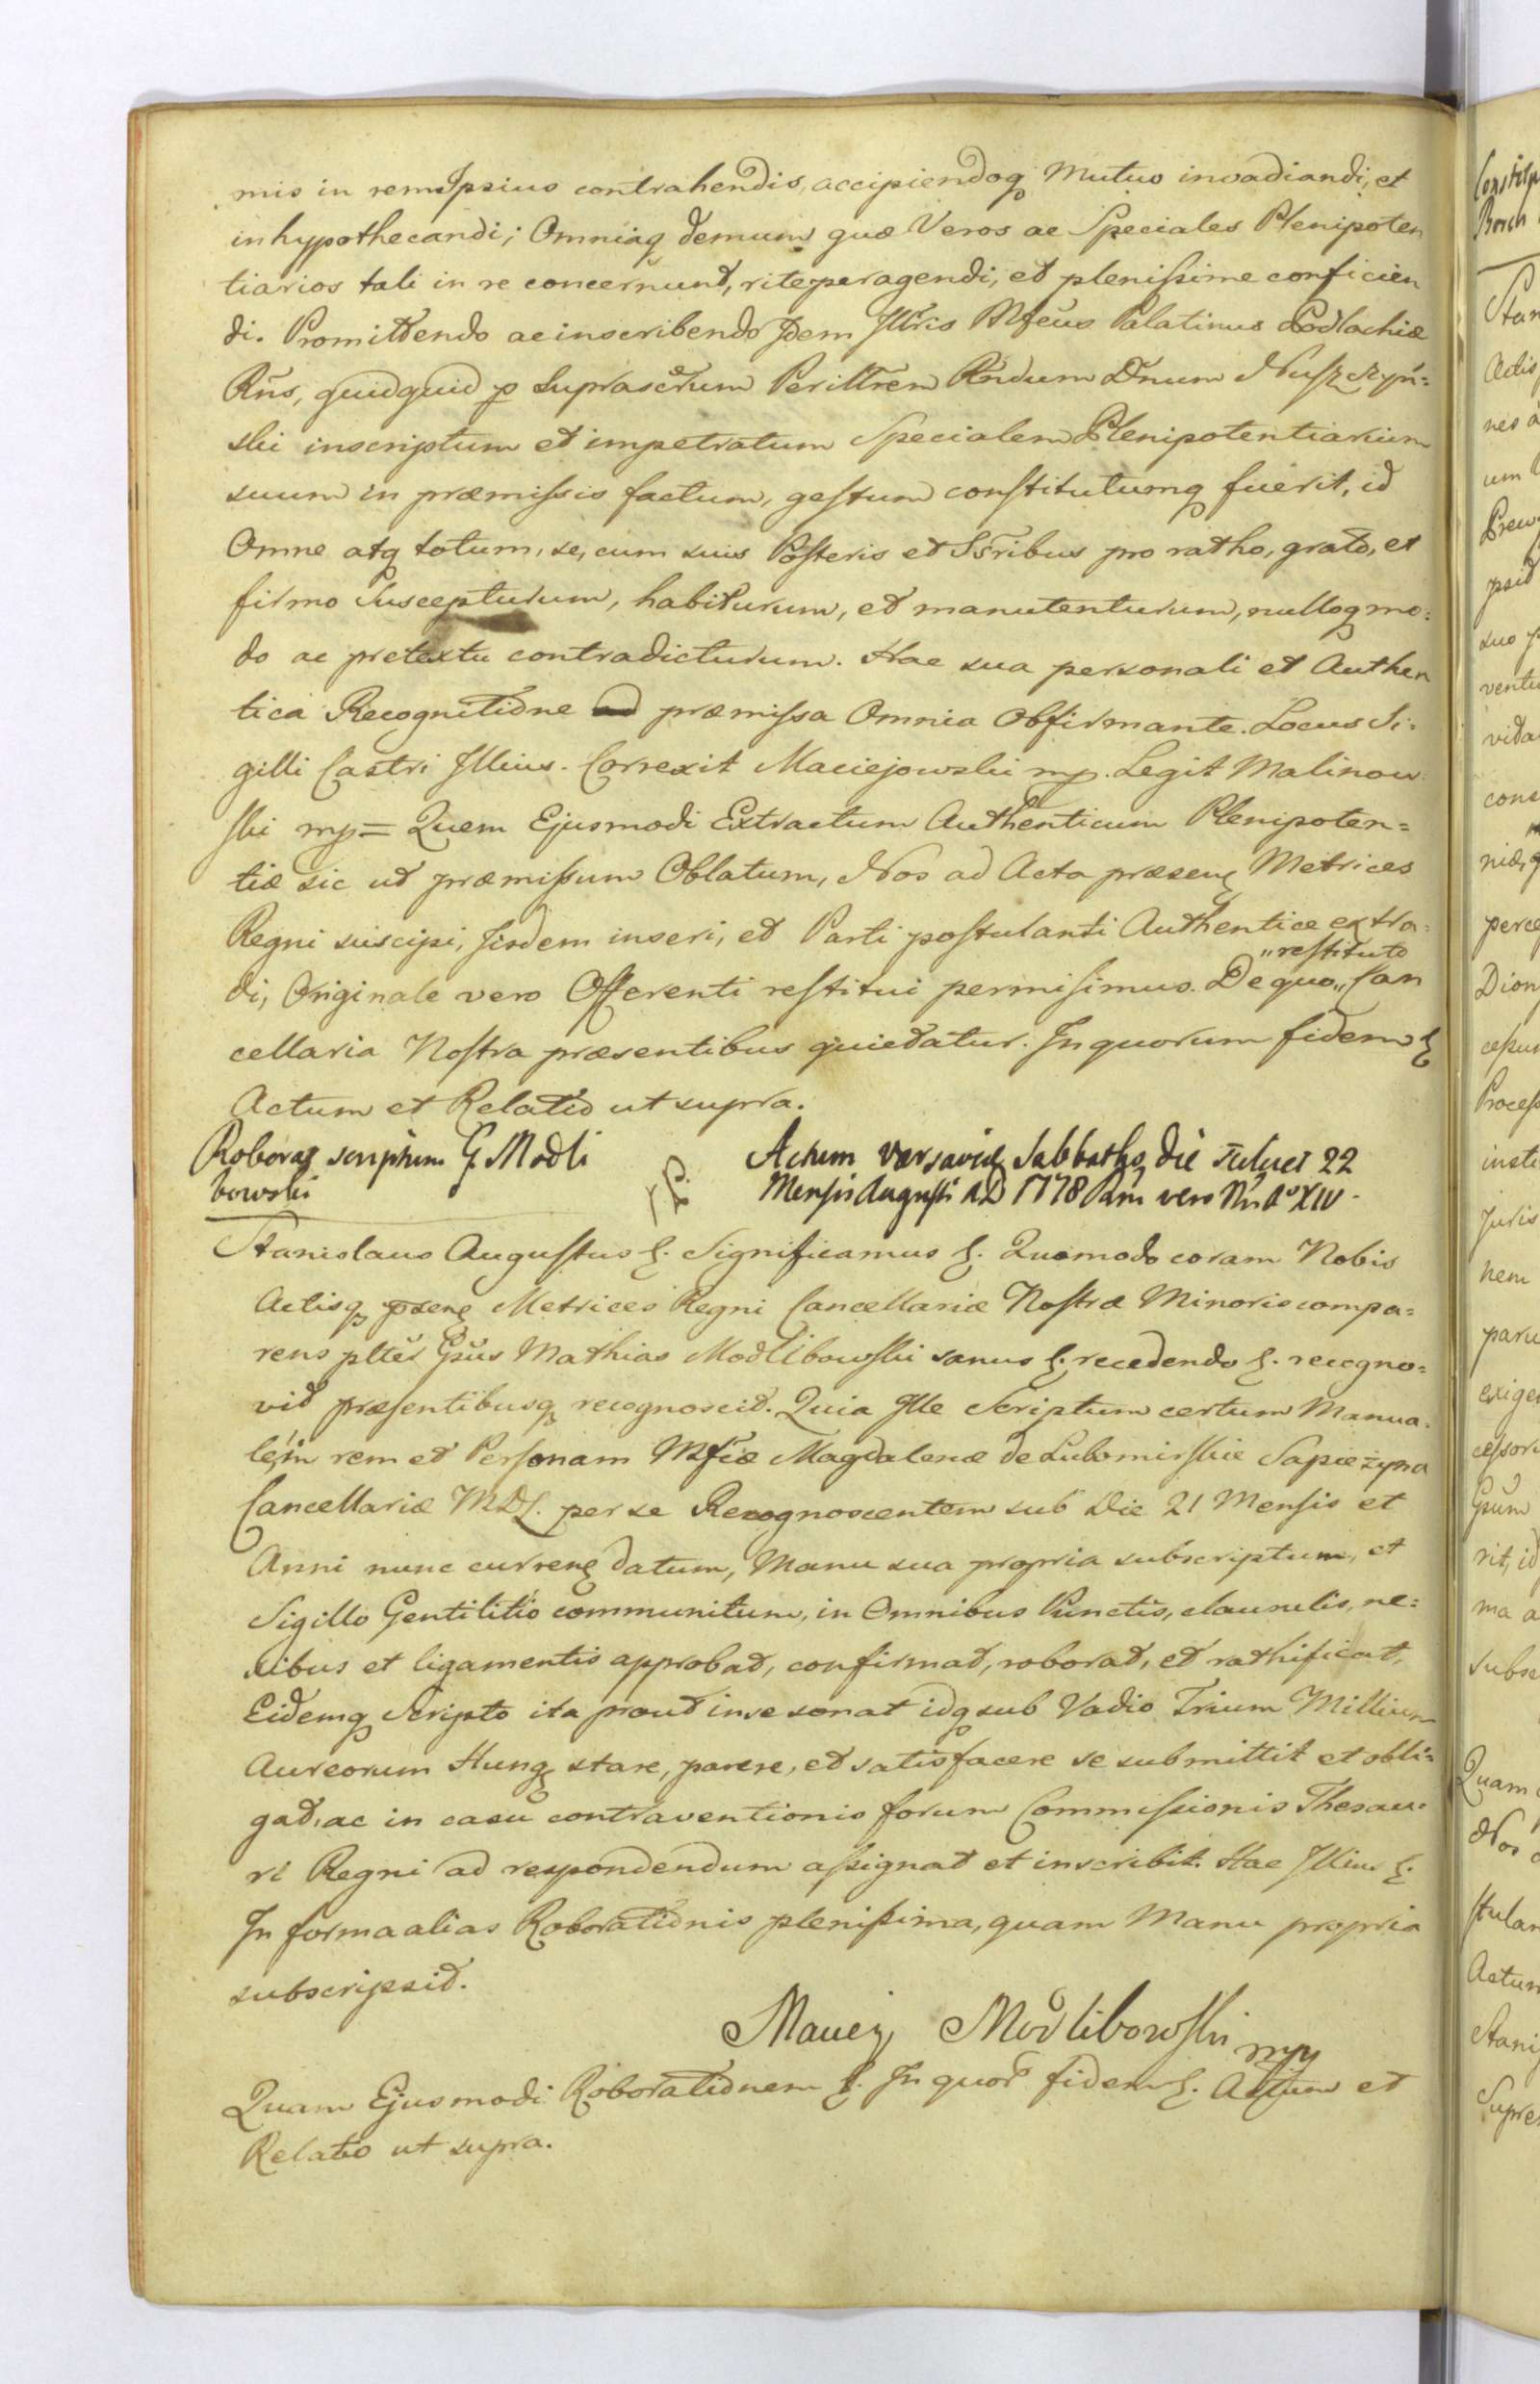 mis in rem Ipsius contrahendis, accipiendoq Mutuo invadiandi, et
inhypothecandi; Omniaq demum quæ Veros ac Speciales Plenipoten
tiarios tali in re concernunt, rite peragendi, et plenissime conficien
di. Promittendo ac inscribendo Idem Illris Mfcus Palatinus Podlachiæ
Rns, quidquid p suprascrtum Perillrem Rndum Dnum Nuszczyń=
ski inscriptum et impetratum Specialem Plenipotentiarium
suum in præmissis factum, gestum constitutumq fuerit, id
Omne atq totum, se, cum suis Posteris et SSribus pro ratho, grato, et
firmo suscepturum, habiturum, et manutenturum, nulloq mo=
do ac pretextu contradicturum. Hac sua personali et Authen
tica Recognitione præmissa Omnia Obfirmante. Locus Si=
gilli Castri Illius. Correxit Maciejowski mp. Legit Malinow
ski mp = Quem Ejusmodi Extractum Authenticum Plenipoten=
tiæ sic ut præmissum Oblatum, Nos ad Acta præsen Metrices
Regni suscipi, Iisdem inseri, et Parti postulanti Authentice extra=
"restituto
di, Originale vero Offerenti restitui permisimus. De quo,, Can
cellaria Nostra præsentibus quietatur. In quorum fidem
Actum et Relatio ut supra.
Roborat scriptum G. Modli
bowski
Actum Varsaviæ Sabbatho, die scilicet 22
Mensis Augusti A.D 1778 Rni vero Nri A° XIV.
Stanislaus Augustus. Significamus. Quomodo coram Nobis
Actisq psen Metrices Regni Cancellariæ Nostræ Minoris compa=
rens plter Gsus Mathias Modlibowski sanus recedendo recogno=
vit præsentibusq recognoscit. Quia Ille Scriptum certum Manua=
le, in rem et Personam Mfcæ Magdalenæ de Lubomirskie Sapieżyna
Cancellariæ M.D.L. per se Recognoscentem sub Die 21 Mensis et
Anni nunc curren datum, Manu sua propria subscriptum, et
Sigillo Gentilitio communitum, in Omnibus Punctis, clausulis, ne=
xibus et ligamentis approbat, confirmat, roborat, et rathificat,
Eidemq Scripto ita prout in se sonat idq sub Vadio Trium Millium
Aureorum Hung stare, parere, et satisfacere se submittit et obli=
gat, ac in casu contraventionis forum Commissionis Thesau=
ri Regni ad respondendum assignat et inscribit. Hac Illius
In forma alias Roborationis plenissima, quam Manu propria
subscripsit.
Maciej Modlibowski mp
Quam Ejusmodi Roborationem. In quor fidem. Actum et
Relatio ut supra.